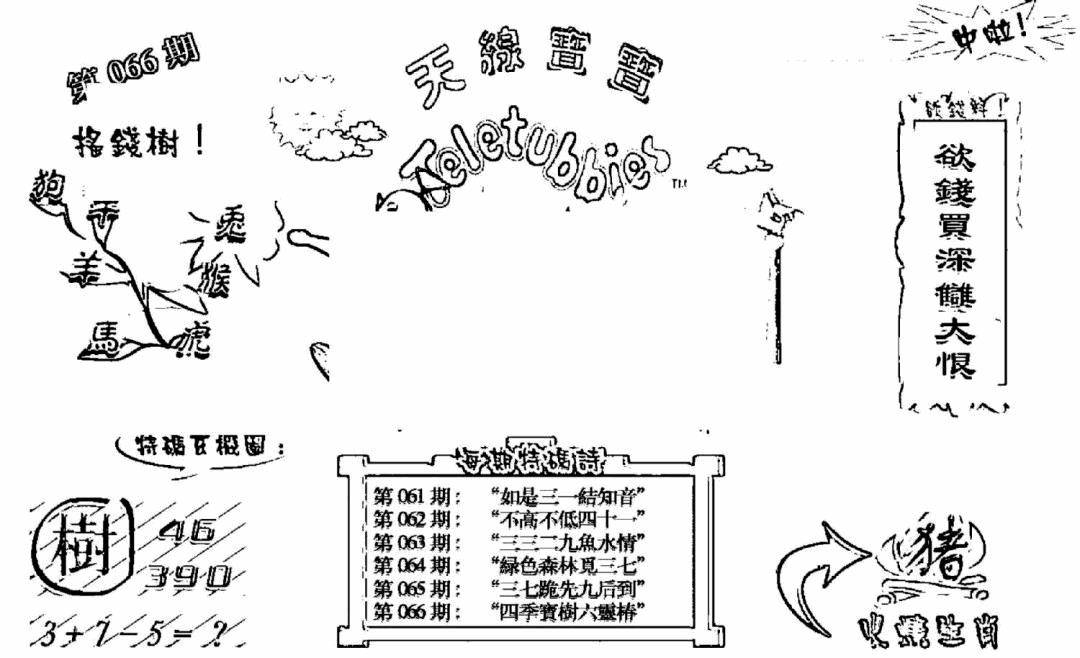 第 066 期
天線寶寶
Teletubbies
TM
中啦!
搖錢樹!
狗
羊
兎
猴
馬
虎
欲錢買深雙大恨
特碼玄機圖:
樹
46
390
3+7-5=?
每期特碼詩
第 061 期: “如是三一結知音”
第 062 期: “不高不低四十一”
第 063 期: “三三二九魚水情”
第 064 期: “綠色森林覓三七”
第 065 期: “三七跪先九后到”
第 066 期: “四季寶樹六靈椿”
猪
生肖